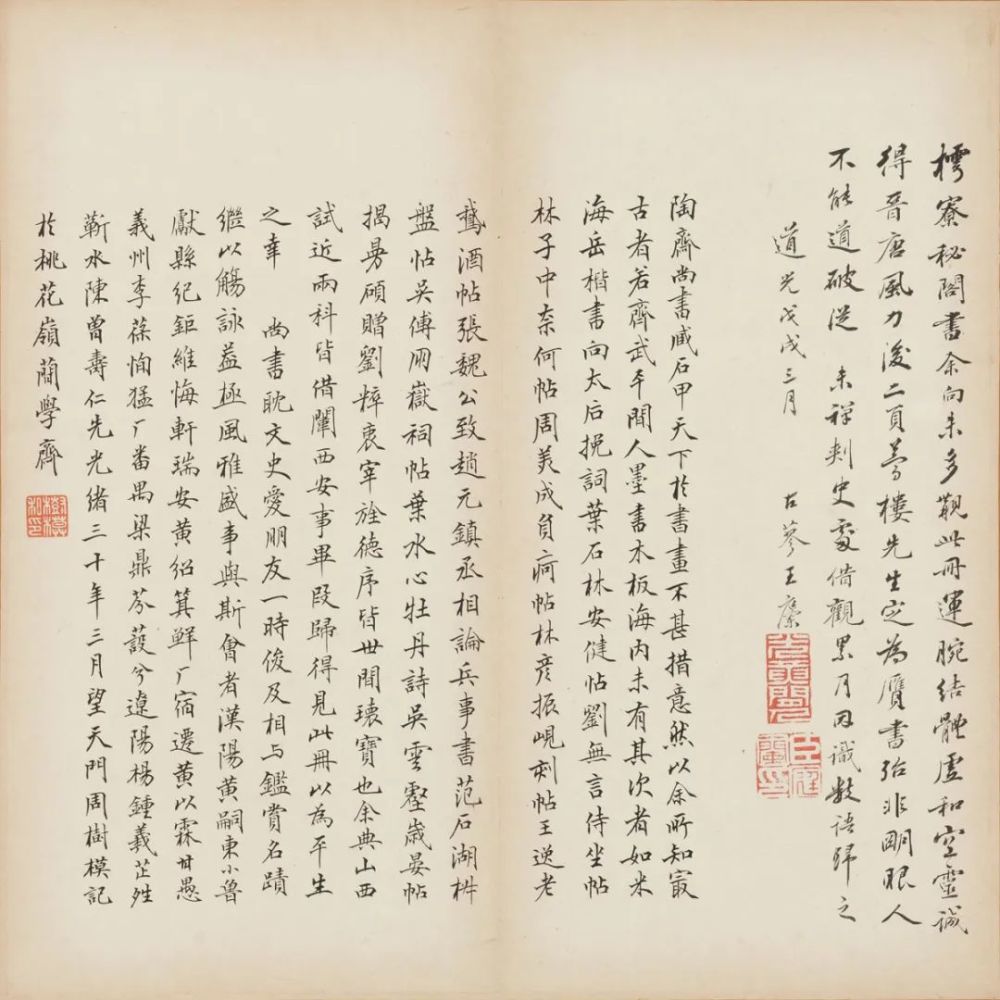 樗寮秘閣書余向未多觀此冊運腕結體虛和空靈誠
得晉唐風力後二頁夢樓先生定為贋書殆非明眼人
不能道破從 未禪刺史處借觀累月因識數語歸之
道光戊戌三月 古蓼王
陶齋尚書臧石甲天下於書畫不甚措意然以余所知㝡
古者若齊武平聞人墨書木板海內未有其次者如米
海岳楷書向太后挽詞葉石林安健帖劉無言侍坐帖
林子中奈何帖周美成負疴帖林彥振峴刻帖王逸老
鵞酒帖張魏公致趙元鎮丞相論兵事書范石湖垪
盤帖吳傅朋嶽祠帖葉水心牡丹詩吳雲壑歲晏帖
揭曼碩贈劉粹衷宰旌德序皆世閒瓌寶也余典山西
試近兩科皆借闈西安事畢叚歸得見此冊以為平生
之幸 尚書耽文史愛朋友一時俊及相与鑑賞名蹟
繼以觴詠益極風雅盛事與斯會者漢陽黃嗣東小魯
獻縣紀鉅維悔軒瑞安黃紹箕鮮厂宿遷黃以霖甘愚
義州李葆恂猛厂番禺梁鼎芬蔎兮遼陽楊鍾羲芷姓
蘄水陳曾壽仁先光緒三十年三月望天門周樹模記
於桃花嶺蕳學齋
周樹模印